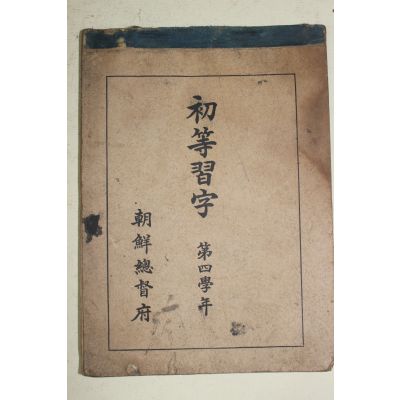 初等習字
第四學年
朝鮮總督府